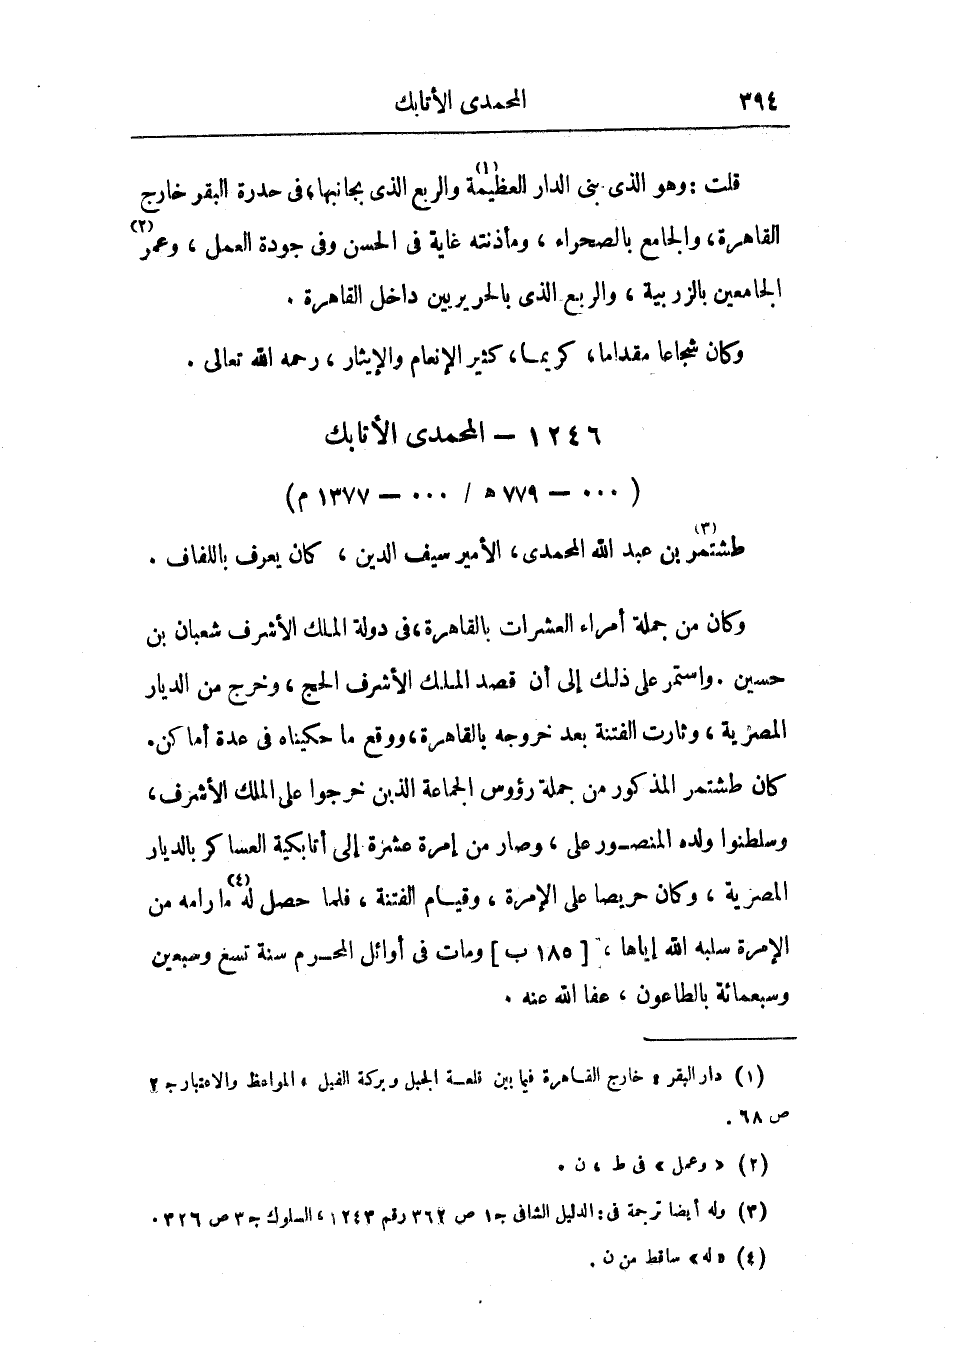 ٣٩٤ المحمدى الأتابك
قلت : وهو الذى بنى الدار العظيمة(١) والربع الذى بجانبها، فى حدرة البقر خارج
القاهرة، والجامع بالصحراء ، ومأذنته غاية فى الحسن وفى جودة العمل ، وعمر(٢)
الجامعين بالزربية ، والربع الذى بالحريريين داخل القاهرة .
وكان شجاعا مقداما، كريما، كثير الإنعام والإيثار ، رحمه الله تعالى .
١٢٤٦ – المحمدى الأتابك
( ٠٠٠ – ٧٧٩ هـ / ٠٠٠ – ١٣٧٧ م)
طشتمر(٣) بن عبد الله المحمدى، الأمير سيف الدين ، كان يعرف باللفاف .
وكان من جملة أمراء العشرات بالقاهرة، فى دولة الملك الأشرف شعبان بن
حسين . واستمر على ذلك إلى أن قصد الملك الأشرف الحج ، وخرج من الديار
المصرية ، وثارت الفتنة بعد خروجه بالقاهرة، ووقع ما حكيناه فى عدة أماكن.
كان طشتمر المذكور من جملة رؤوس الجماعة الذين خرجوا على الملك الأشرف،
وسلطنوا ولده المنصور على ، وصار من إمرة عشرة إلى أتابكية العساكر بالديار
المصرية ، وكان حريصا على الإمرة ، وقيام الفتنة ، فلما حصل له(٤) ما رامه من
الإمرة سلبه الله إياها ، [ ١٨٥ ب ] ومات فى أوائل المحرم سنة تسع وسبعين
وسبعمائة بالطاعون ، عفا الله عنه .
(١) دار البقر : خارج القاهرة فيما بين قلعة الجبل وبركة الفيل ، المواعظ والاعتبار جـ ٢
ص ٦٨ .
(٢) « وعمل » فى ط ، ن .
(٣) وله أيضا ترجمة فى : الدليل الشافى جـ ١ ص ٣٦٢ رقم ١٢٤٣ ، السلوك جـ ٣ ص ٣٢٦ .
(٤) « له » ساقط من ن .